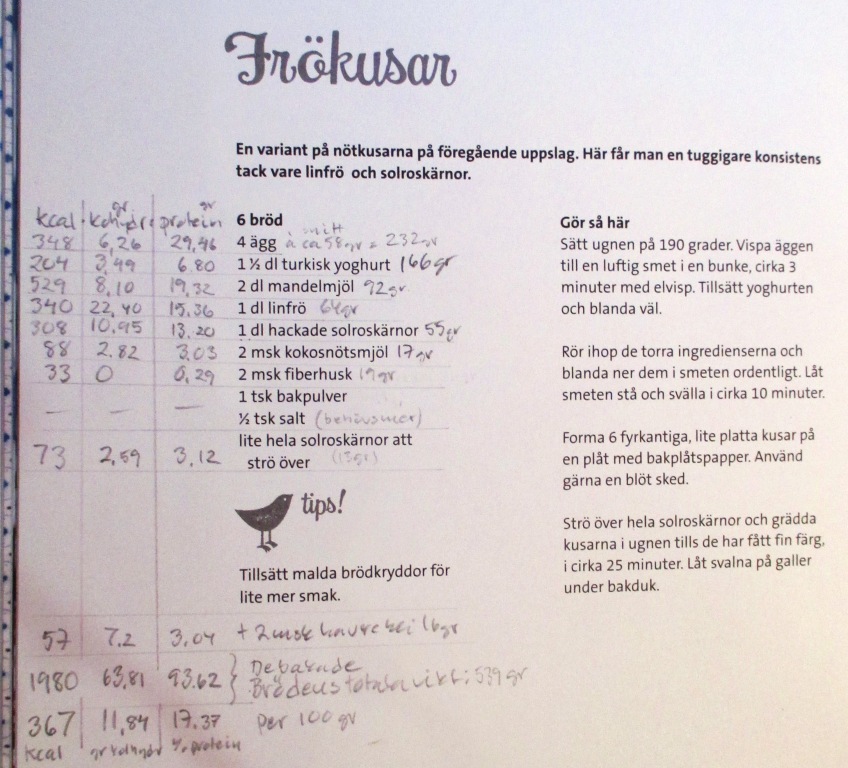 Frökusar
En variant på nötkusarna på föregående uppslag. Här får man en tuggigare konsistens
tack vare linfrö och solroskärnor.
gr gr
kcal kohydr protein 6 bröd
348 6,26 29,46 4 ägg à ca 58gr = 232gr
204 3,99 6.80 1 ½ dl turkisk yoghurt 166gr
529 8,10 19,32 2 dl mandelmjöl 92gr
340 22,40 15,36 1 dl linfrö 64gr
308 10,95 13,20 1 dl hackade solroskärnor 55gr
88 2.82 3,03 2 msk kokosnötsmjöl 17gr
33 0 0,29 2 msk fiberhusk 19gr
1 tsk bakpulver
— — — ½ tsk salt (behövs mer)
lite hela solroskärnor att
73 2,59 3,12 strö över (13gr)
tips!
Tillsätt malda brödkryddor för
lite mer smak.
57 7.2 3,04 + 2 msk havrekli 16gr
1980 63,81 93.62 } De bakade
Brödens totala vikt: 539 gr
367 11,84 17.37 per 100 gr
kcal gr kolhydr % protein
Gör så här
Sätt ugnen på 190 grader. Vispa äggen
till en luftig smet i en bunke, cirka 3
minuter med elvisp. Tillsätt yoghurten
och blanda väl.
Rör ihop de torra ingredienserna och
blanda ner dem i smeten ordentligt. Låt
smeten stå och svälla i cirka 10 minuter.
Forma 6 fyrkantiga, lite platta kusar på
en plåt med bakplåtspapper. Använd
gärna en blöt sked.
Strö över hela solroskärnor och grädda
kusarna i ugnen tills de har fått fin färg,
i cirka 25 minuter. Låt svalna på galler
under bakduk.